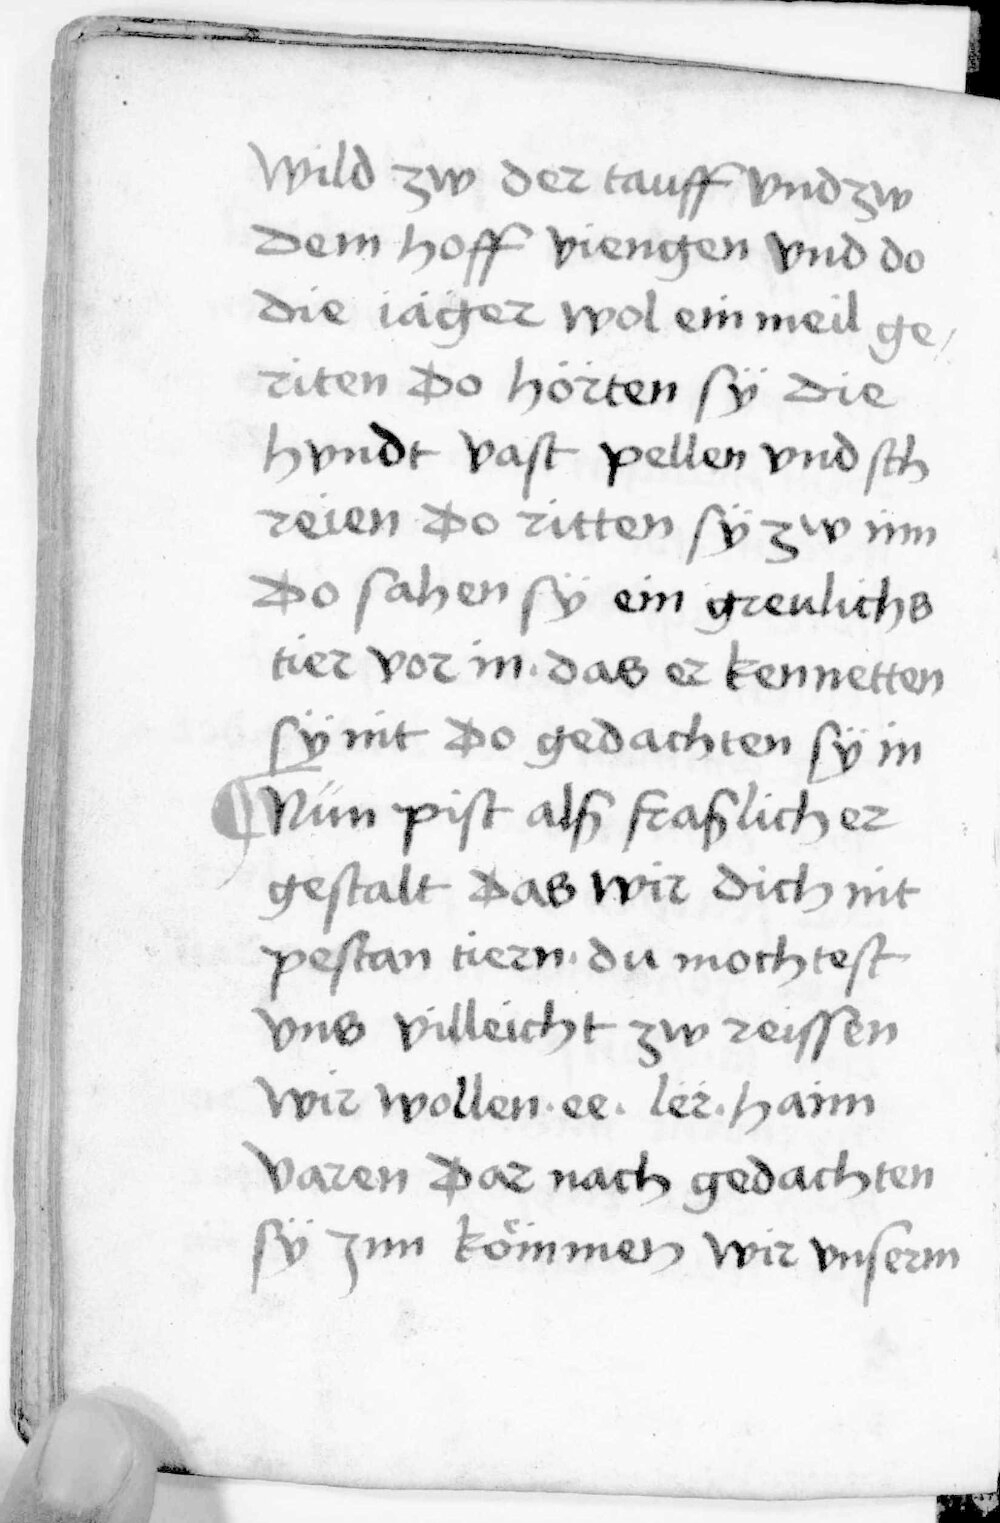 wild zw der tauff vnd zw
dem hoff viengen vnd do
die iäger wol ein meil ge/
riten Do hörten sÿ die
hvndt vast pellen vnd sch
reien Do ritten sÿ zw inn
Do sahen sÿ ein greulichs
tier vor in · das er kennetten
sÿ nit Do gedachten sÿ in
¶ Nün pist alß fraßlich er
gestalt Das wir dich nit
pestan tiern · du mochtest
vns villeicht zw reissen
wir wollen · ee · ler · haim
varen Dar nach gedachten
sÿ zım kömmen wir vnserm